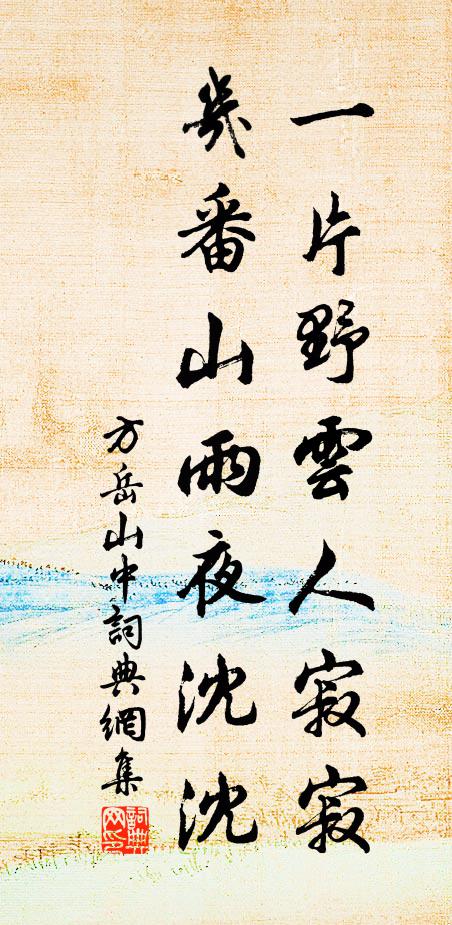 一片野雲人寂寂
幾番山雨夜沈沈
方岳山中詞典網集
詞典網印